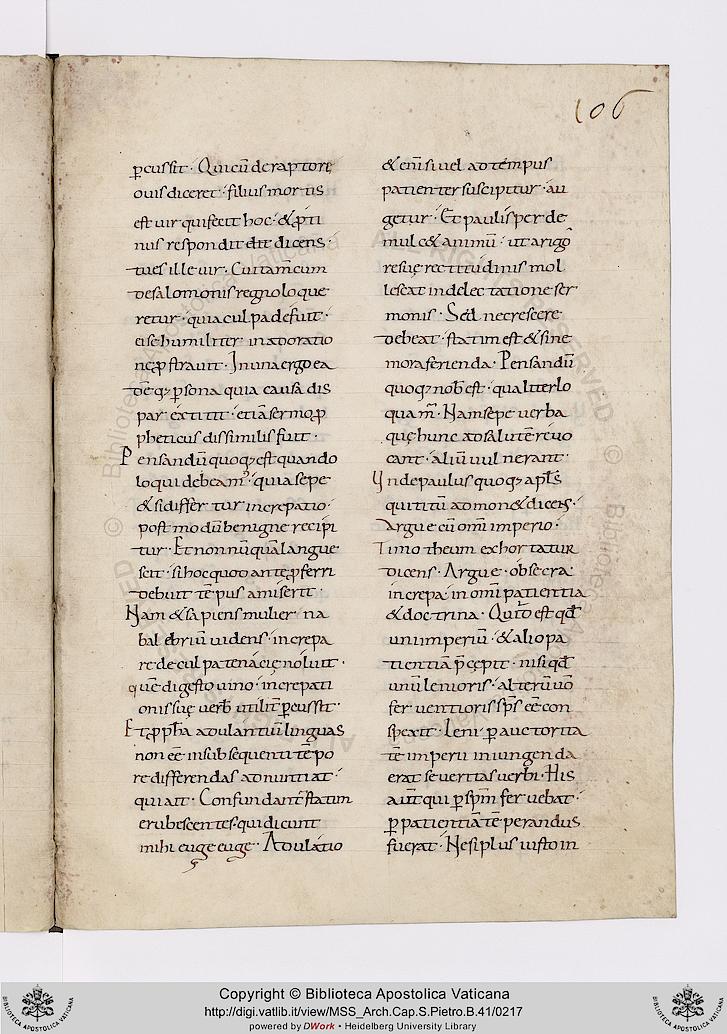 106
ꝑcussit · Qui cū de raptore
ouis diceret · filius mortis
est uir qui fecit hoc · & ꝓti
nus respondit ei dicens ·
tu es ille uir · Cui tam̄ cum
de salomonis regno loque
retur · quia culpa defuit ·
ei se humiliter in adoratio
nę ꝓstrauit · In una ergo ea
dēq; ꝑsona quia causa dis
par extitit · etiā sermo ꝓ
pheticus dissimilis fuit ·
Pensandū quoq; est quando
loqui debeam' · quia sepe
& si differtur increpatio ·
postmodū benigne recipi
tur · Et nonnūquā langue
scit · si hoc quod ante ꝓferri
debuit tēpus amiserit ·
Nam & sapiens mulier na
bal ebriū uidens · increpa
re de culpa tenacię noluit ·
quē digesto uino · increpati
onis suę uerb̄ utilit̄ ꝑcussit ·
Et ꝓph̄a adulantiū linguas
non eē in subsequenti tēpo
re differendas adnuntiat ·
qui ait · Confundant̄ statim
erubescentes · qui dicunt
mihi euge euge · Adulatio
& enī si uel ad tempus
patienter suscipitur · au
getur · Et paulisper de
mulc& animū · ut a rigo
re suę rectitudinis mol
lescat in delectatione ser
monis · Sed ne crescere
debeat · statim est & sine
mora ferienda · Pensandū
quoq; nob̄ est · qualiter lo
quam̄ · Nam sepe uerba
quę hunc ad salutē reuo
cant · aliū uulnerant ·
Unde paulus quoq; apl̄s
qui titū admon& dicens ·
Argue cū omī imperio ·
Timotheum exhortatur
dicens · Argue · obsecra ·
increpa · in omī patientia
& doctrina · Quid est qđ
uni imperiū · & alio pa
tientiā p̄cepit · nisi qđ
unū lenioris · alterū uō
feruentioris sp̄s eē con
spexit · Leni ꝑ auctorita
tē imperii iniungenda
erat seueritas uerbi · His
aūt qui ꝑ sp̄m feruebat ·
ꝑ patientiā tēperandus
fuerat · Ne si plus iusto in
Copyright © Biblioteca Apostolica Vaticana
http://digi.vatlib.it/view/MSS_Arch.Cap.S.Pietro.B.41/0217
powered by DWork • Heidelberg University Library